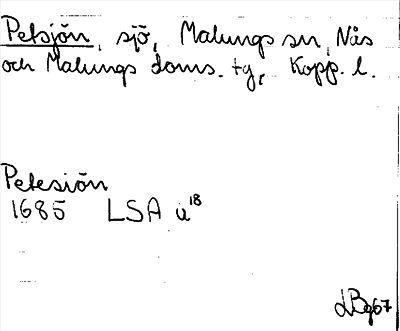 Petsjön, sjö, Malungs sn, Nås
och Malungs doms. tg, Kopp. l.
Petesiön
1685 LSA u18
LBg67